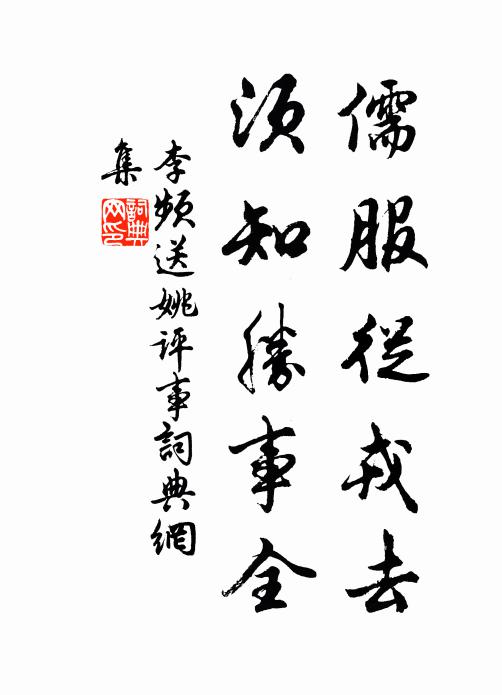 儒服從戎去
須知勝事全
李頻送姚評事詞典網
集
詞典
网印